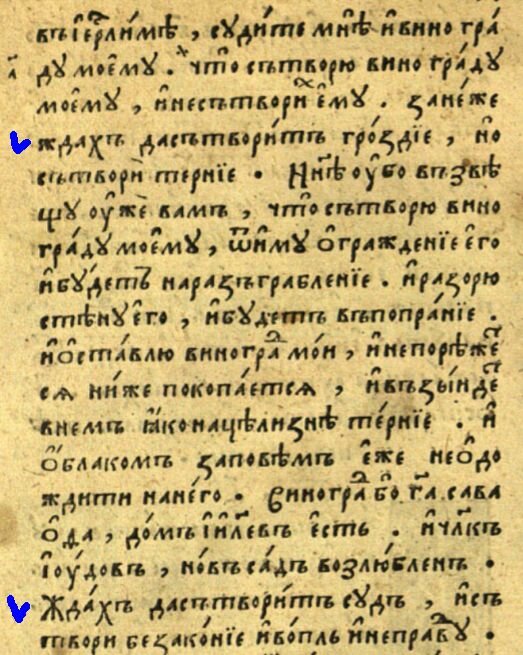 въ і҆ерⷭ҇лимѣ , сꙋди́те мнѣ и҆ вино гра́
а҃ дꙋ моемꙋ̀ . что̀ сътворю вино гра́дꙋ
моемꙋ̀ , и҆ несътвори́хъ е҆мꙋ̀ . зане́же
ждахъ да сътвори́тъ гро́здїе , но̀
сътворѝ терние . Нн҃ѣ оу҆́бо възвѣ
щꙋ оу҆жѐ вамъ , что̀ сътворю вино
гра́дꙋ моемꙋ̀ , ѿимꙋ о҆гражденїе е҆го̀
и҆ бꙋ́детъ на разъграбленїе . и҆ разорю
стѣ́нꙋ е҆го̀ , и҆ бꙋ́детъ въ попра́нїе .
и҆ о҆ста́влю виногра́ⷣ мо́и , и҆ не порѣ́жеⷮ
сѧ ни́же покопа́етсѧ , и҆ възы́иⷣеⷮ
внемъ ꙗ҆́ко на цѣлизнѣ те́рнїе . и҆
о҆́блакомъ заповѣмъ е҆́же не о҆до
ждити нане́го . Виногра́ⷣ бо̀ гⷭ҇а сава
о҆́ѳа , до́мъ і҆и҃левъ е҆́сть . и҆ чл҃къ
і҆ꙋдовъ , но́въ са́дъ возлю́бленъ .
Жда́хъ да сътвори́тъ сꙋдъ , и҆ съ
твори беззако́нїе и҆ во́пль и҆ непра́вⷣꙋ .